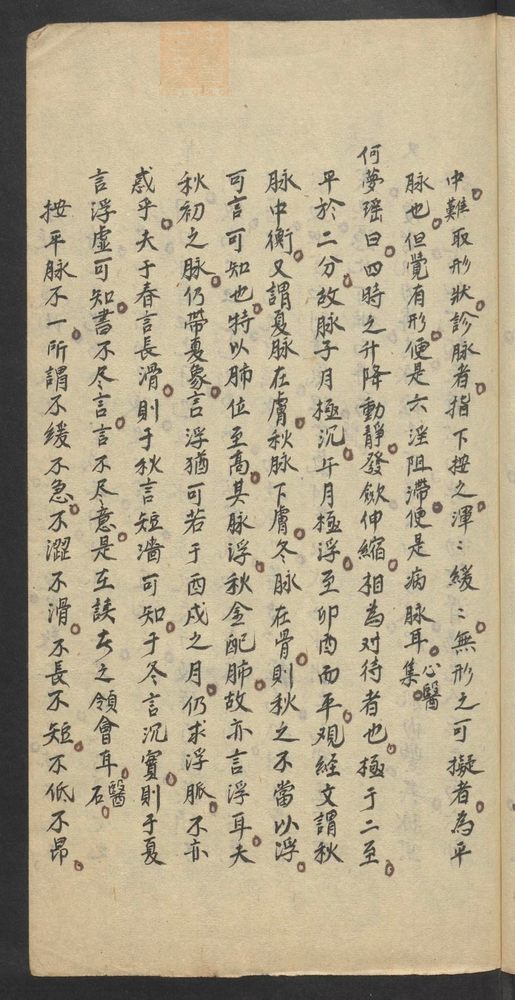 中難取形狀診脉者指下按之渾〻緩〻無形之可擬者為平
脉也但覺有形便是六淫阻滯便是病脉耳醫心集
何夢瑶曰四時之升降動靜發斂伸縮相為对待者也極于二至
平於二分故脉子月極沉午月極浮至卯酉而平观經文謂秋
脉中衡又謂夏脉在膚秋脉下膚冬脉在骨則秋之不當以浮
可言可知也特以肺位至高其脉浮秋金配肺故亦言浮耳夫
秋初之脉仍带夏象言浮猶可若于酉戌之月仍求浮脈不亦
惑乎夫于春言長滑則于秋言短濇可知于冬言沉實則于夏
言浮虛可知書不尽言言不尽意是在讀者之領會耳醫石
按平脉不一所謂不緩不急不澀不滑不長不短不低不昂